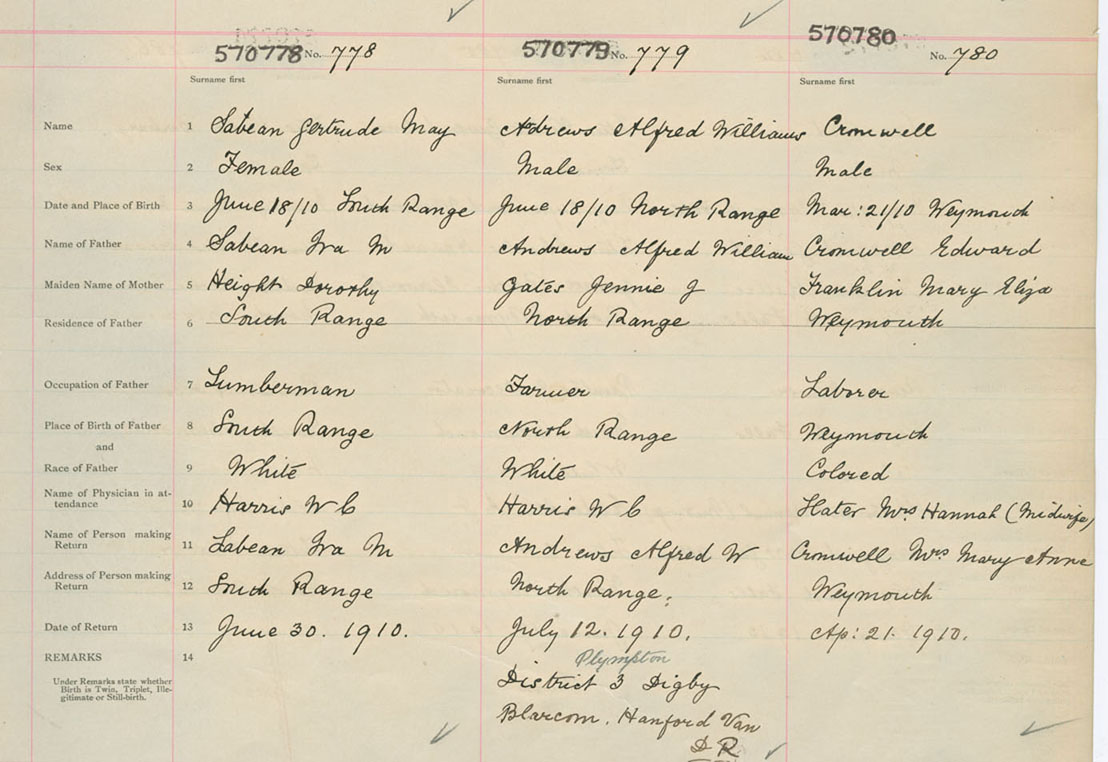 570778 No. 778 570779 No. 779 570780 No. 780
Surname first Surname first Surname first
Name 1 Sabean Gertrude May Andrews Alfred Williams Cromwell
Sex 2 Female Male Male
Date and Place of Birth 3 June 18/10 South Range June 18/10 North Range Mar: 21/10 Weymouth
Name of Father 4 Sabean Ira M Andrews Alfred William Cromwell Edward
Maiden Name of Mother 5 Height Dorothy Gates Jennie J Franklin Mary Eliza
Residence of Father 6 South Range North Range Weymouth
Occupation of Father 7 Lumberman Farmer Laborer
Place of Birth of Father 8 South Range North Range Weymouth
and
Race of Father 9 White White Colored
Name of Physician in at-
tendance 10 Harris W C Harris W C Mrs Hannah (Midwife)
Name of Person making
Return 11 Sabean Ira M Andrews Alfred W Cromwell Mrs Mary Anne
Address of Person making
Return 12 South Range North Range. Weymouth
Date of Return 13 June 30. 1910. July 12. 1910. Ap: 21. 1910.
REMARKS 14 Plympton
Under Remarks state whether
Birth is Twin, Triplet, Ille-
gitimate or Still-birth.
District 3 Digby
Blarcom. Hanford Van
D R